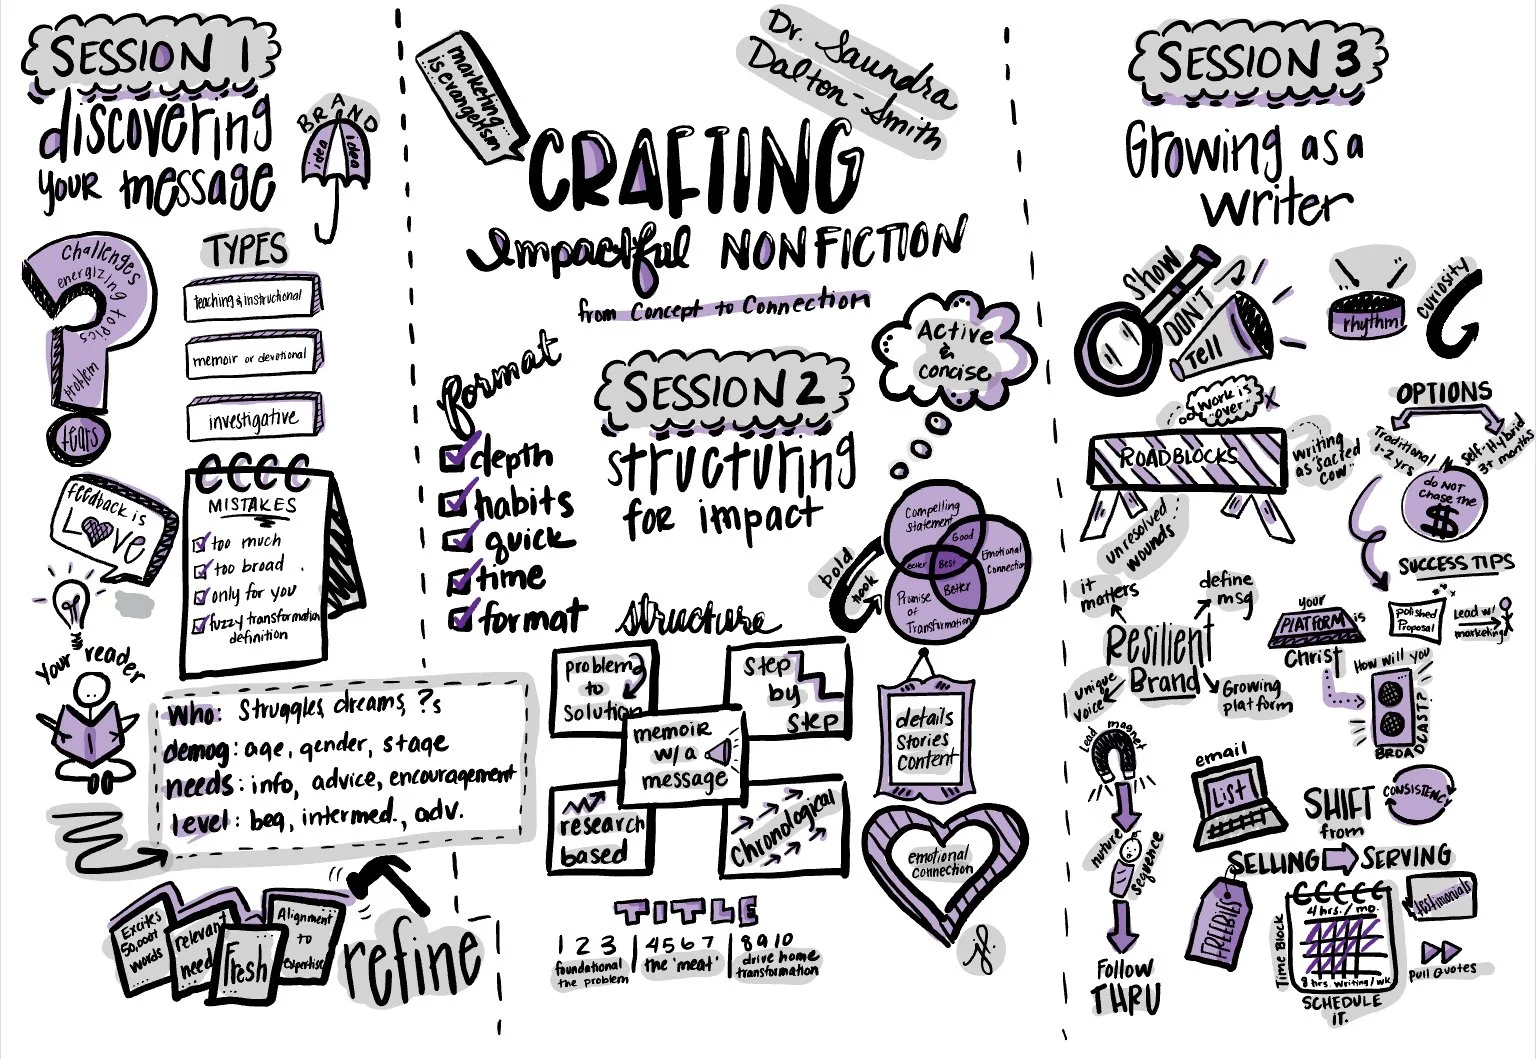 SESSION 1
discovering
your message
BRAND
idea
idea
Challenges
energizing
topics
Problem
tears
TYPES
teaching & instructional
memoir or devotional
investigative
feedback is
LOVE
MISTAKES
too much
too broad
only for you
fuzzy transformation
definition
Your reader
Who: Struggles, dreams, ?s
demog: age, gender, stage
needs: info, advice, encouragement
level: beg, intermed., adv.
Excites
50,000+
words
relevant
need
Fresh
Alignment
to
Expertise
refine
marketing...
is evangelism
Dr. Saundra
Dalton-Smith
CRAFTING
Impactful NONFICTION
from Concept to Connection
format
depth
habits
quick
time
format
SESSION 2
structuring
for impact
Active
&
concise
bold
hook
Compelling
Statement
Good
Emotional
Connection
Better
Best
Better
Promise
of
Transformation
structure
problem
to
solution
Step
by
Step
memoir
w/ a
message
research
based
Chronological
details
Stories
Content
emotional
connection
TITLE
1 2 3
foundational
the problem
4 5 6 7
the 'meat'
8 9 10
drive home
transformation
jf.
SESSION 3
Growing as a
writer
Show
DON'T
Tell
rhythm
curiosity
work is
over
ROADBLOCKS
writing
as sacred
cow
unresolved
wounds
OPTIONS
Traditional
1-2 yrs
Self-Hybrid
3+ months
do NOT
chase the
$
SUCCESS TIPS
it
matters
define
msg
Resilient
Brand
unique
voice
Growing
platform
your
PLATFORM is
Christ
Polished
Proposal
Lead w/
marketing
How will you
BROADCAST?
Lead magnet
nuture
sequence
Follow
THRU
email
LIST
SHIFT
from
SELLING SERVING
CONSISTENCY
FREEBIES
Time Block
4 hrs./mo.
8 hrs. writing/wk
SCHEDULE
IT.
testimonials
Pull Quotes